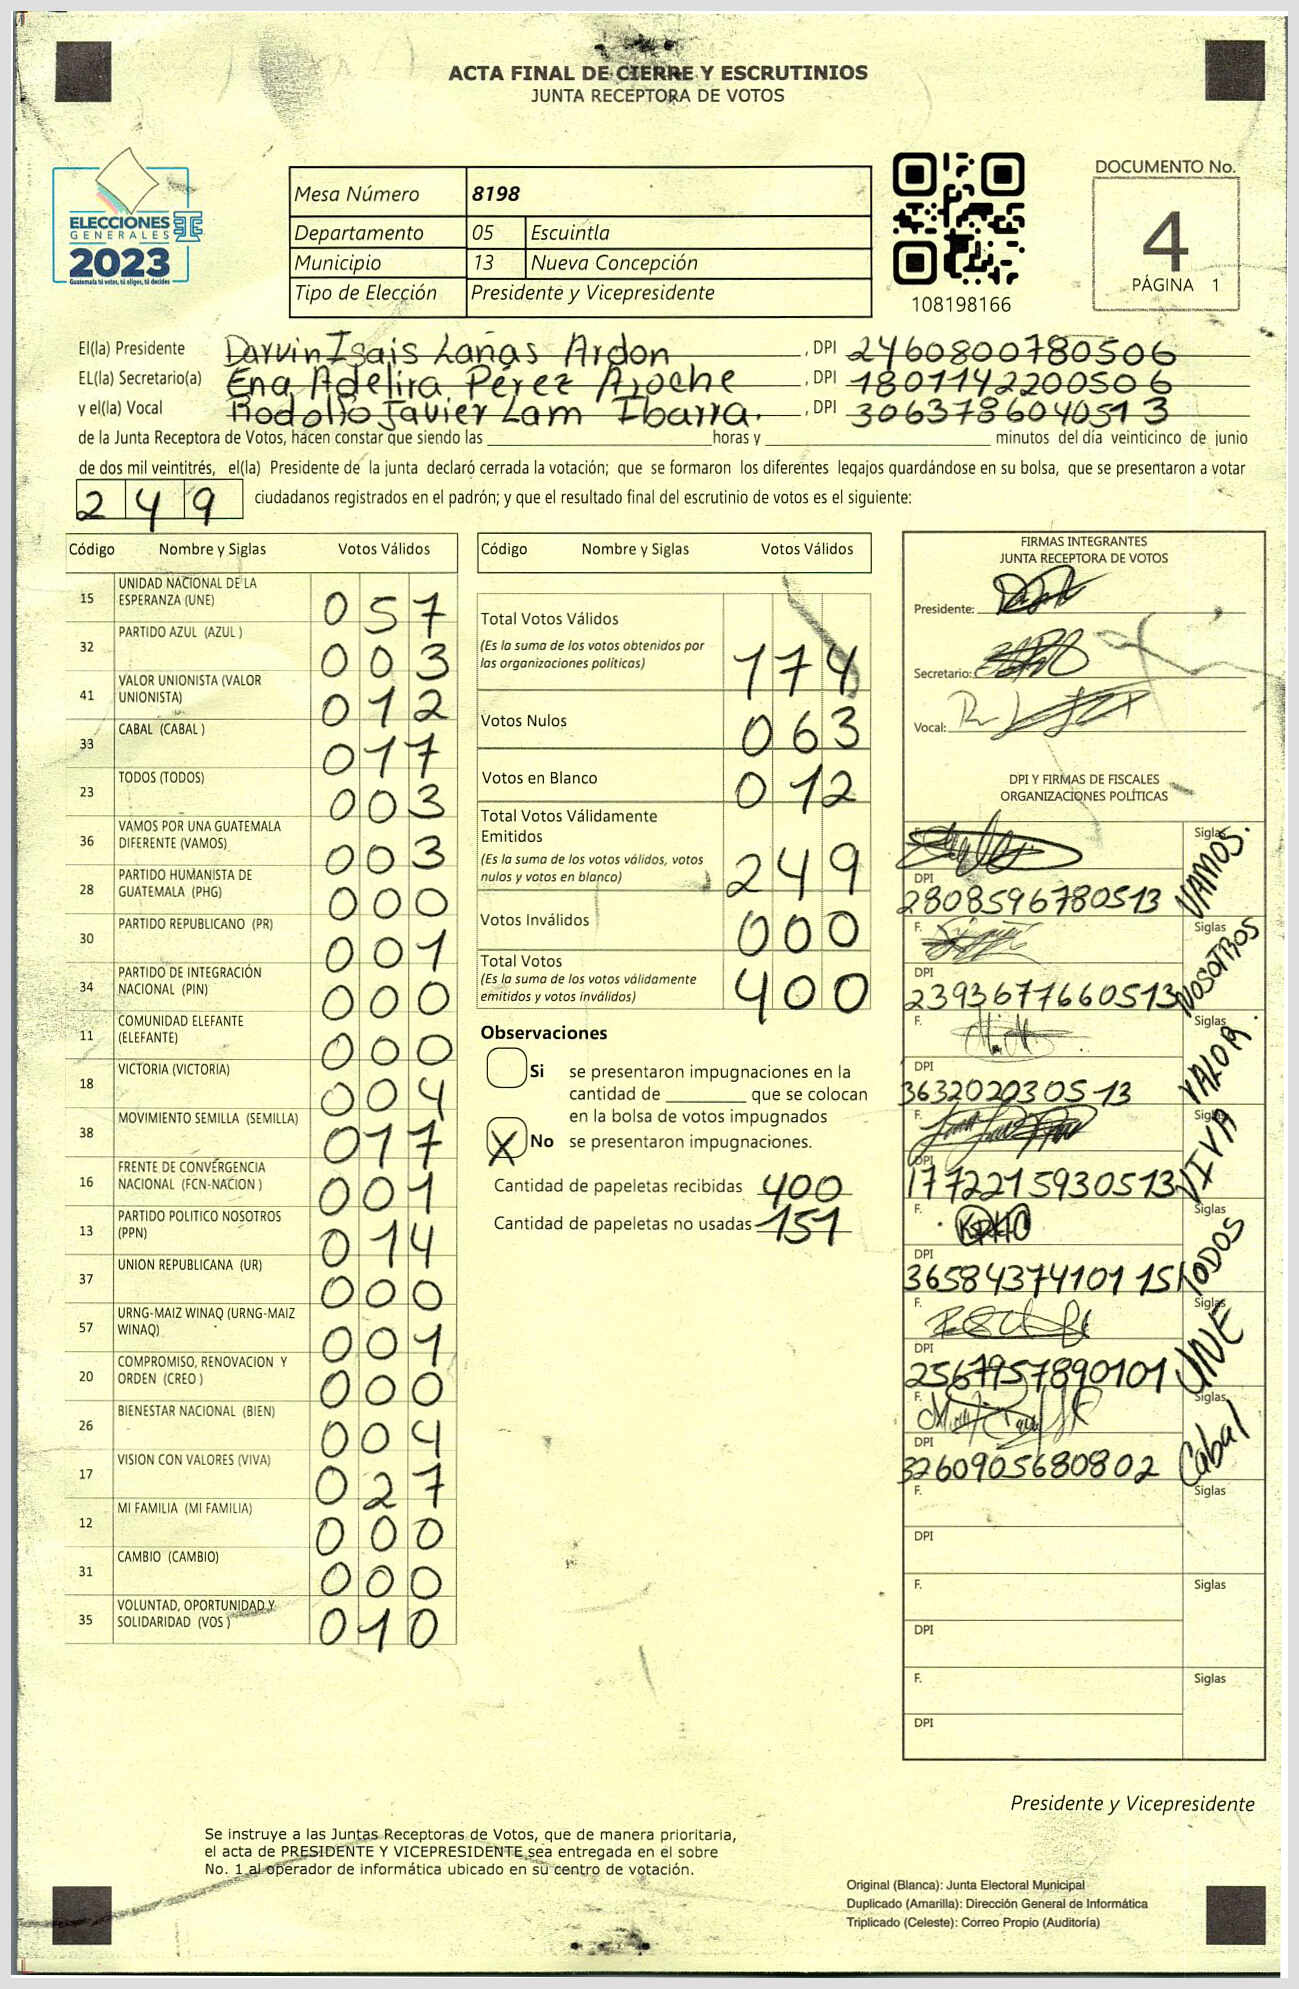 ACTA FINAL DE CIERRE Y ESCRUTINIOS
JUNTA RECEPTORA DE VOTOS
ELECCIONES
GENERALES
2023
Guatemala tú votas, tú eliges, tú decides
Mesa Número 8198
Departamento 05 Escuintla
Municipio 13 Nueva Concepción
Tipo de Elección Presidente y Vicepresidente
108198166
DOCUMENTO No.
4
PÁGINA 1
El(la) Presidente Darvin Isais Lañas Ardon , DPI 2460800780506
EL(la) Secretario(a) Ena Adelira Pérez Aroche , DPI 1801142200506
y el(la) Vocal Rodolfo Javier Lam Ibarra. , DPI 3063786040513
de la Junta Receptora de Votos, hacen constar que siendo las horas y minutos del día veinticinco de junio
de dos mil veintitrés, el(la) Presidente de la junta declaró cerrada la votación; que se formaron los diferentes legajos guardándose en su bolsa, que se presentaron a votar
249 ciudadanos registrados en el padrón; y que el resultado final del escrutinio de votos es el siguiente:
Código Nombre y Siglas Votos Válidos
15 UNIDAD NACIONAL DE LA ESPERANZA (UNE) 057
32 PARTIDO AZUL (AZUL ) 003
41 VALOR UNIONISTA (VALOR UNIONISTA) 012
33 CABAL (CABAL ) 017
23 TODOS (TODOS) 003
36 VAMOS POR UNA GUATEMALA DIFERENTE (VAMOS) 003
28 PARTIDO HUMANISTA DE GUATEMALA (PHG) 000
30 PARTIDO REPUBLICANO (PR) 001
34 PARTIDO DE INTEGRACIÓN NACIONAL (PIN) 000
11 COMUNIDAD ELEFANTE (ELEFANTE) 000
18 VICTORIA (VICTORIA) 004
38 MOVIMIENTO SEMILLA (SEMILLA) 017
16 FRENTE DE CONVERGENCIA NACIONAL (FCN-NACION ) 001
13 PARTIDO POLITICO NOSOTROS (PPN) 014
37 UNION REPUBLICANA (UR) 000
57 URNG-MAIZ WINAQ (URNG-MAIZ WINAQ) 001
20 COMPROMISO, RENOVACION Y ORDEN (CREO ) 000
26 BIENESTAR NACIONAL (BIEN) 004
17 VISION CON VALORES (VIVA) 027
12 MI FAMILIA (MI FAMILIA) 000
31 CAMBIO (CAMBIO) 000
35 VOLUNTAD, OPORTUNIDAD Y SOLIDARIDAD (VOS ) 010
Código Nombre y Siglas Votos Válidos
Total Votos Válidos 174
(Es la suma de los votos obtenidos por
las organizaciones políticas)
Votos Nulos 063
Votos en Blanco 012
Total Votos Válidamente
Emitidos 249
(Es la suma de los votos válidos, votos
nulos y votos en blanco)
Votos Inválidos 000
Total Votos 400
(Es la suma de los votos válidamente
emitidos y votos inválidos)
Observaciones
Si se presentaron impugnaciones en la
cantidad de que se colocan
en la bolsa de votos impugnados
X No se presentaron impugnaciones.
Cantidad de papeletas recibidas 400
Cantidad de papeletas no usadas 151
FIRMAS INTEGRANTES
JUNTA RECEPTORA DE VOTOS
Presidente:
Secretario:
Vocal:
DPI Y FIRMAS DE FISCALES
ORGANIZACIONES POLÍTICAS
F. Siglas VAMOS.
DPI 2808596780513
F. Siglas NOSOTROS
DPI 2393677660513
F. Siglas VALOR.
DPI 363202030513
F. Siglas VIVA
DPI 1772215930513
F. Siglas TODOS
DPI 36584374101 151
F. Siglas UNE
DPI 2567957890101
F. Siglas Cabal
DPI 3260905680802
F. Siglas
DPI
F. Siglas
DPI
F. Siglas
DPI
Presidente y Vicepresidente
Se instruye a las Juntas Receptoras de Votos, que de manera prioritaria,
el acta de PRESIDENTE Y VICEPRESIDENTE sea entregada en el sobre
No. 1 al operador de informática ubicado en su centro de votación.
Original (Blanca): Junta Electoral Municipal
Duplicado (Amarilla): Dirección General de Informática
Triplicado (Celeste): Correo Propio (Auditoría)